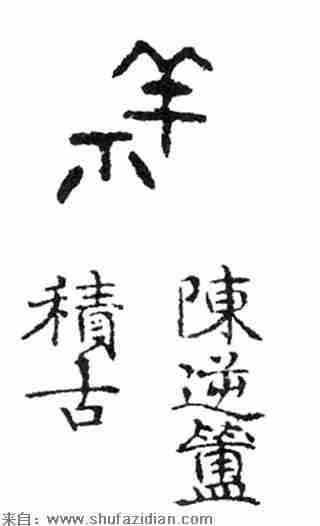 祥
陳逆簠
積古
来自：www.shufazidian.com